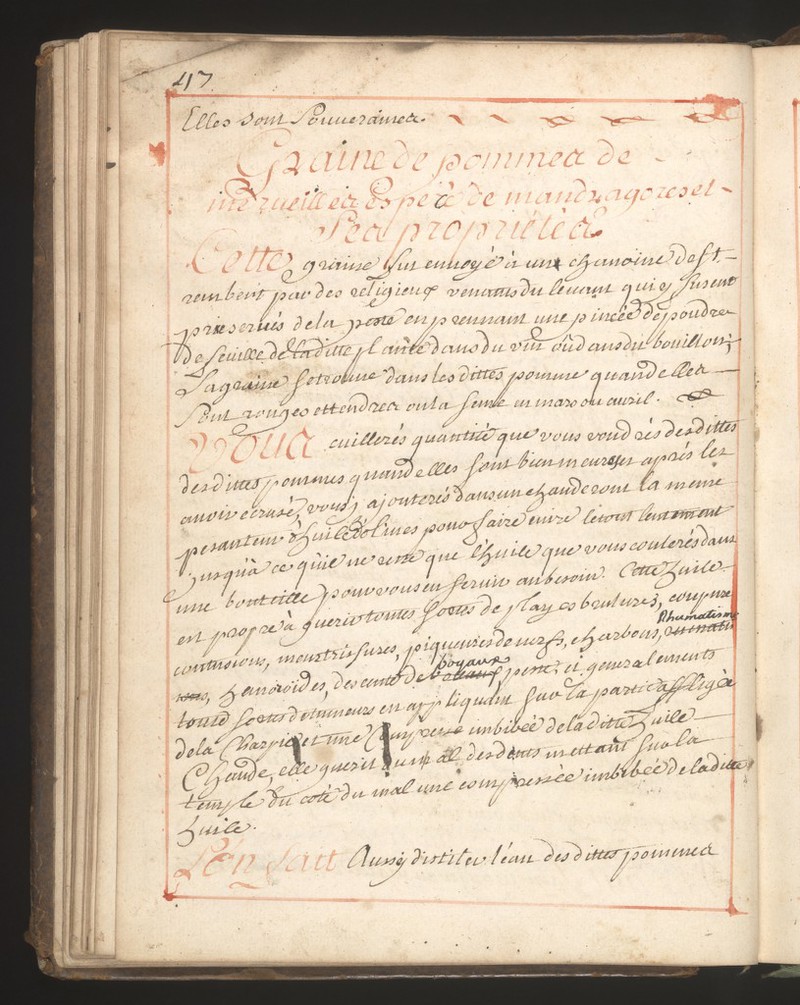 47
Elles sont Souueraines.
Graine de pommes de
merueilles espèce de mandragores et
Ses propriétés
Cette graine fut enuoyé à un chanoine de st.
rembert par des religieux venants du leuant qui sy fusent
préserués de la peste en prennant une pincée de poudre
de feuille de laditte plante dans du vin où dans du bouillon;
La graine se trouue dans les dittes pomme quand elles
Sont rouges et tendres on la seme en mars ou auril.
Vous cuillerés quantité que vous voudrés desdittes
desdittes pommes quand elles sont bien meures et aprés les
auoir ecrasé, vous j ajouterés dans un chauderont la meme
pesanteur d'huile d'oliues pour faire cuire le tout lentement
jusqu'à ce qu'il ne reste que l'huile que vous coulerés dans
une bouteille pour vous en seruir au besoin. Cette huile
est propre a guerir toutes sortes de playes brulures, coupure
contusions, meurtrissures, piqueures de nerfs, charbons, Rhumatisme
hemoroides, descente de boyaux peste, et generalements
toutes sortes de tumeurs en appliquant sur la partie affligée
de la Charpie et une Compresse imbibée de laditte huile
Chaude, elle guerit du mal des dents mettant sur la
temple du coté du mal une compressée imbibée de laditte
huile.
L'on fait Aussy distiler l'eau des dittes pommes